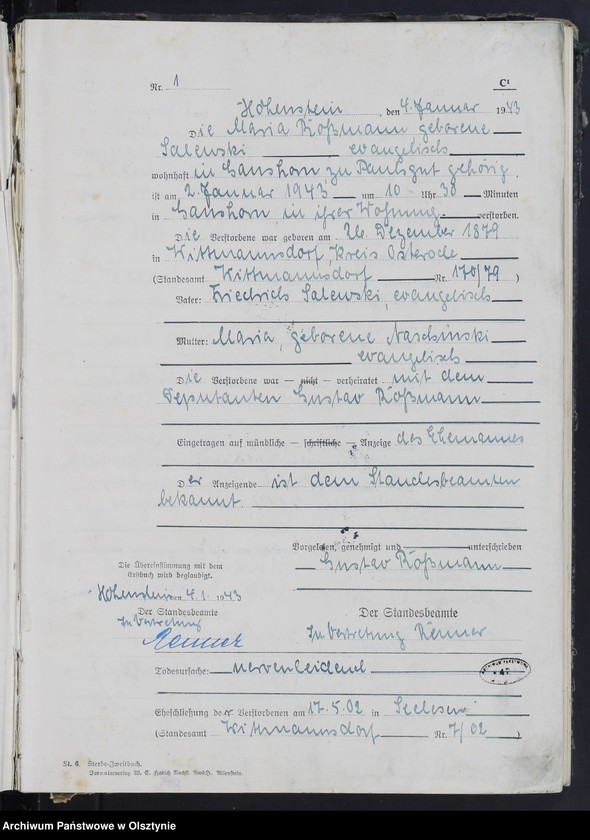 Nr. 1
C¹
Hohenstein, den 4. Januar 1943
Die Maria Roßmann, geborene
Salewski evangelisch
wohnhaft in Ganshorn, zu Paulsgut gehörig,
ist am 2. Januar 1943 um 10 Uhr 30 Minuten
in Ganshorn, in ihrer Wohnung verstorben.
Die Verstorbene war geboren am 26. Dezember 1879
in Wittmannsdorf, Kreis Osterode
(Standesamt Wittmannsdorf Nr. 170/79)
Vater: Friedrich Salewski, evangelisch
Mutter: Maria, geborene Naschinski
evangelisch
Die Verstorbene war — nicht — verheiratet mit dem
Deputanten Gustav Roßmann
Eingetragen auf mündliche — schriftliche — Anzeige des Ehemannes
Der Anzeigende ist dem Standesbeamten
bekannt.
Vorgelesen, genehmigt und unterschrieben
Gustav Roßmann
Die Übereinstimmung mit dem
Erstbuch wird beglaubigt.
Hohenstein, den 4.1. 1943
Der Standesbeamte
In Vertretung
Der Standesbeamte
In Vertretung
Todesursache: nervenleidend
Eheschließung der Verstorbenen am 17.5.02 in Seelesen
(Standesamt Wittmannsdorf Nr. 7/02)
St. 6. Sterbe-Zweitbuch.
Vordruckverlag W. E. Harich Nachf. GmbH. Allenstein.
Archiwum Państwowe w Olsztynie